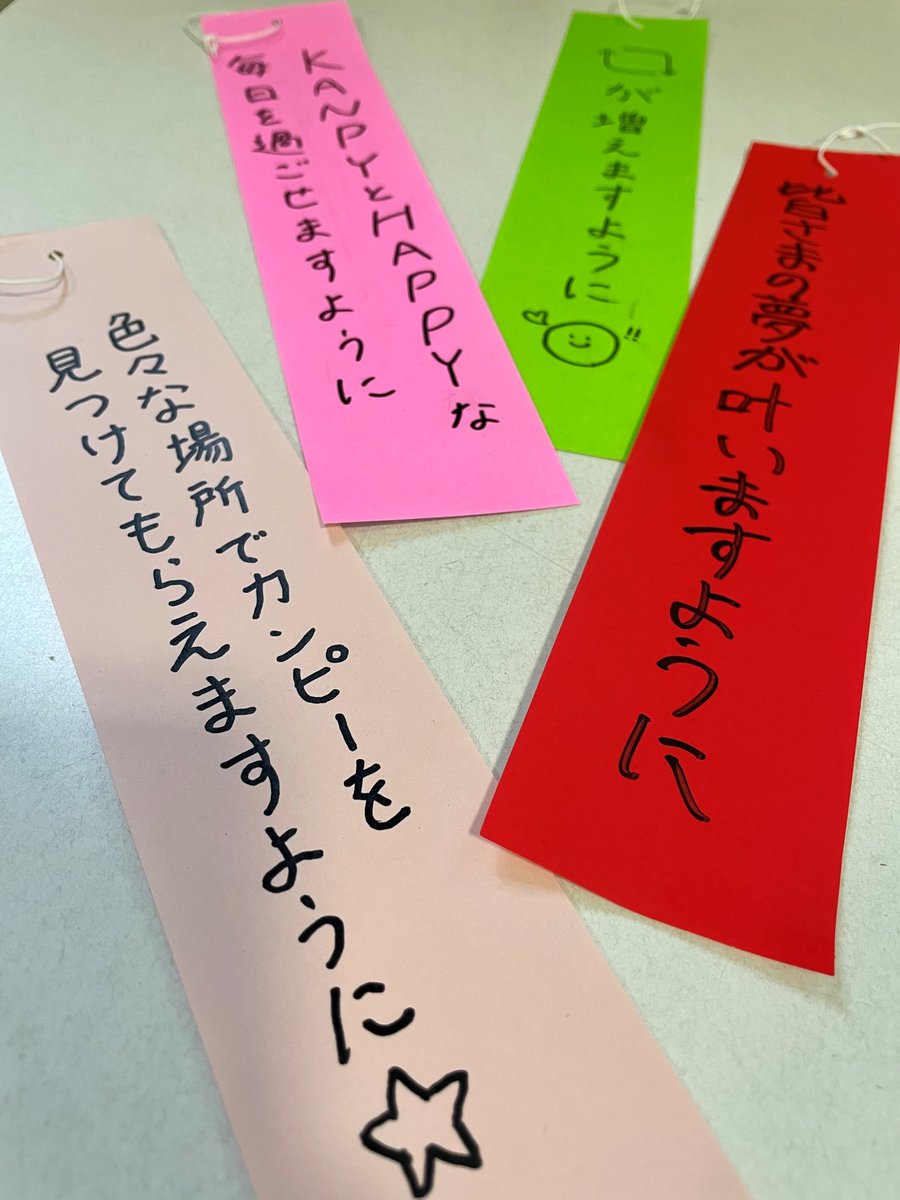 色々な場所でカンピーを
見つけてもらえますように
KANPYとHAPPYな
毎日を過ごせますように
が増えますように
!!
皆さまの夢が叶いますように